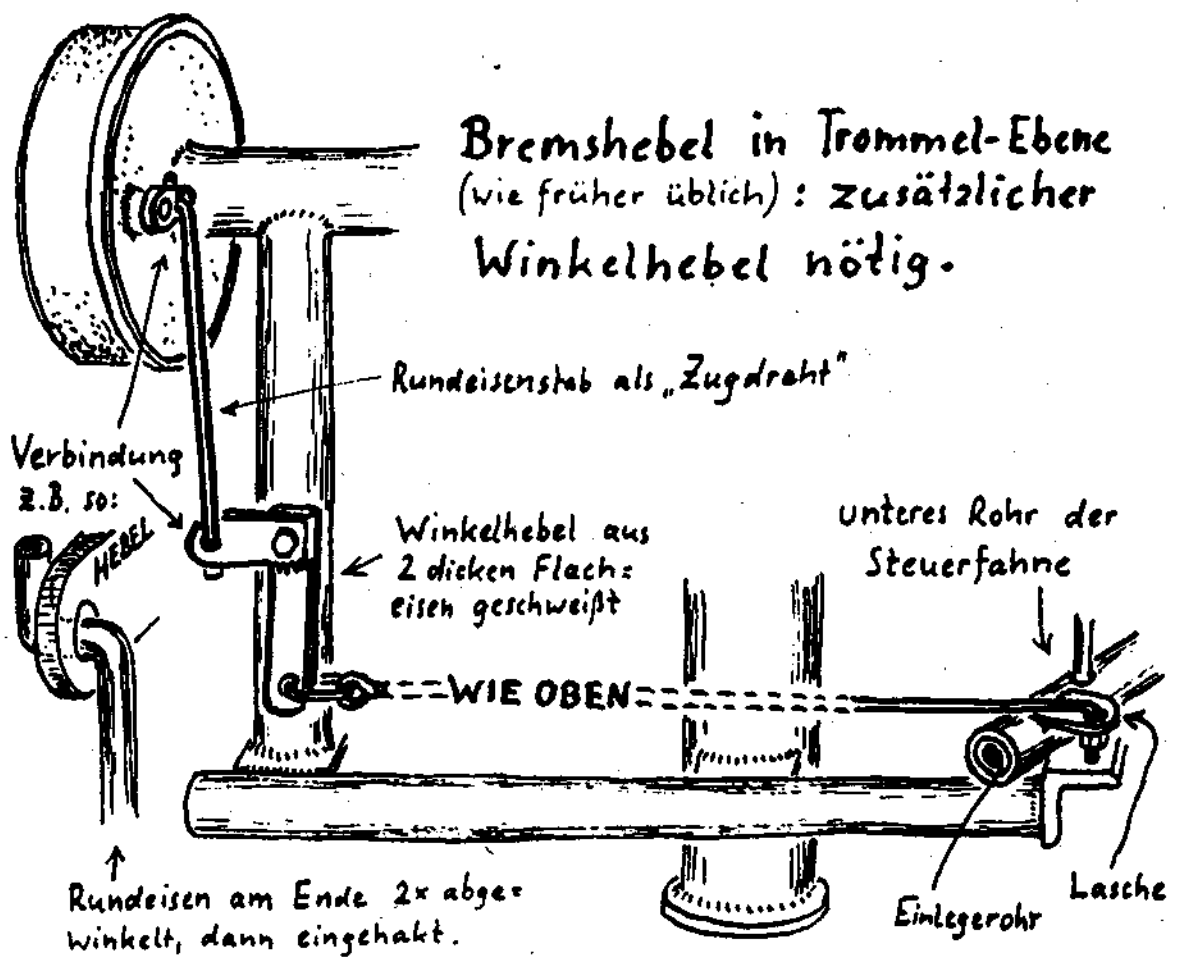 Bremshebel in Trommel-Ebene
(wie früher üblich): zusätzlicher
Winkelhebel nötig.
Rundeisenstab als „Zugdraht"
Verbindung
z.B. so:
HEBEL
Winkelhebel aus
2 dicken Flach=
eisen geschweißt
unteres Rohr der
Steuerfahne
WIE OBEN
Rundeisen am Ende 2x abge=
winkelt, dann eingehakt.
Einlegerohr
Lasche